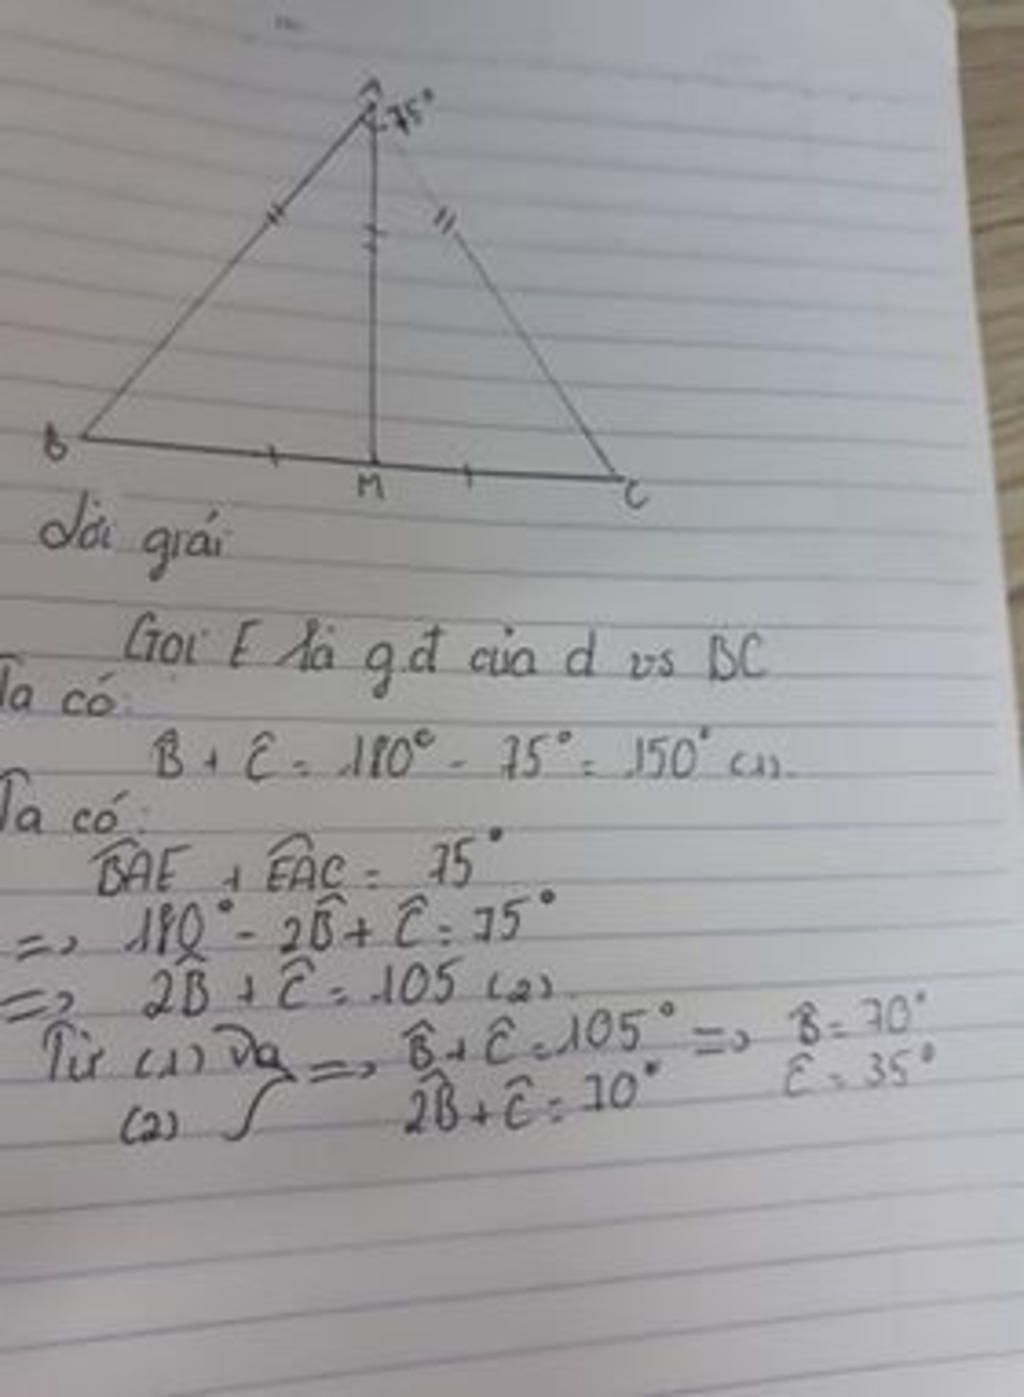 A
75°
B
M
C
Lời giải
Gọi E là g.đ của d vs BC
Ta có:
B̂ + Ĉ = 180° - 75° = 150° (1).
Ta có:
BAE + EAC = 75°
=> 180° - 2B̂ + Ĉ = 75°
=> 2B̂ + Ĉ = 105 (2)
Từ (1) và => B̂ + Ĉ = 105° => B̂ = 70°
(2) 2B̂ + Ĉ = 70° Ĉ = 35°